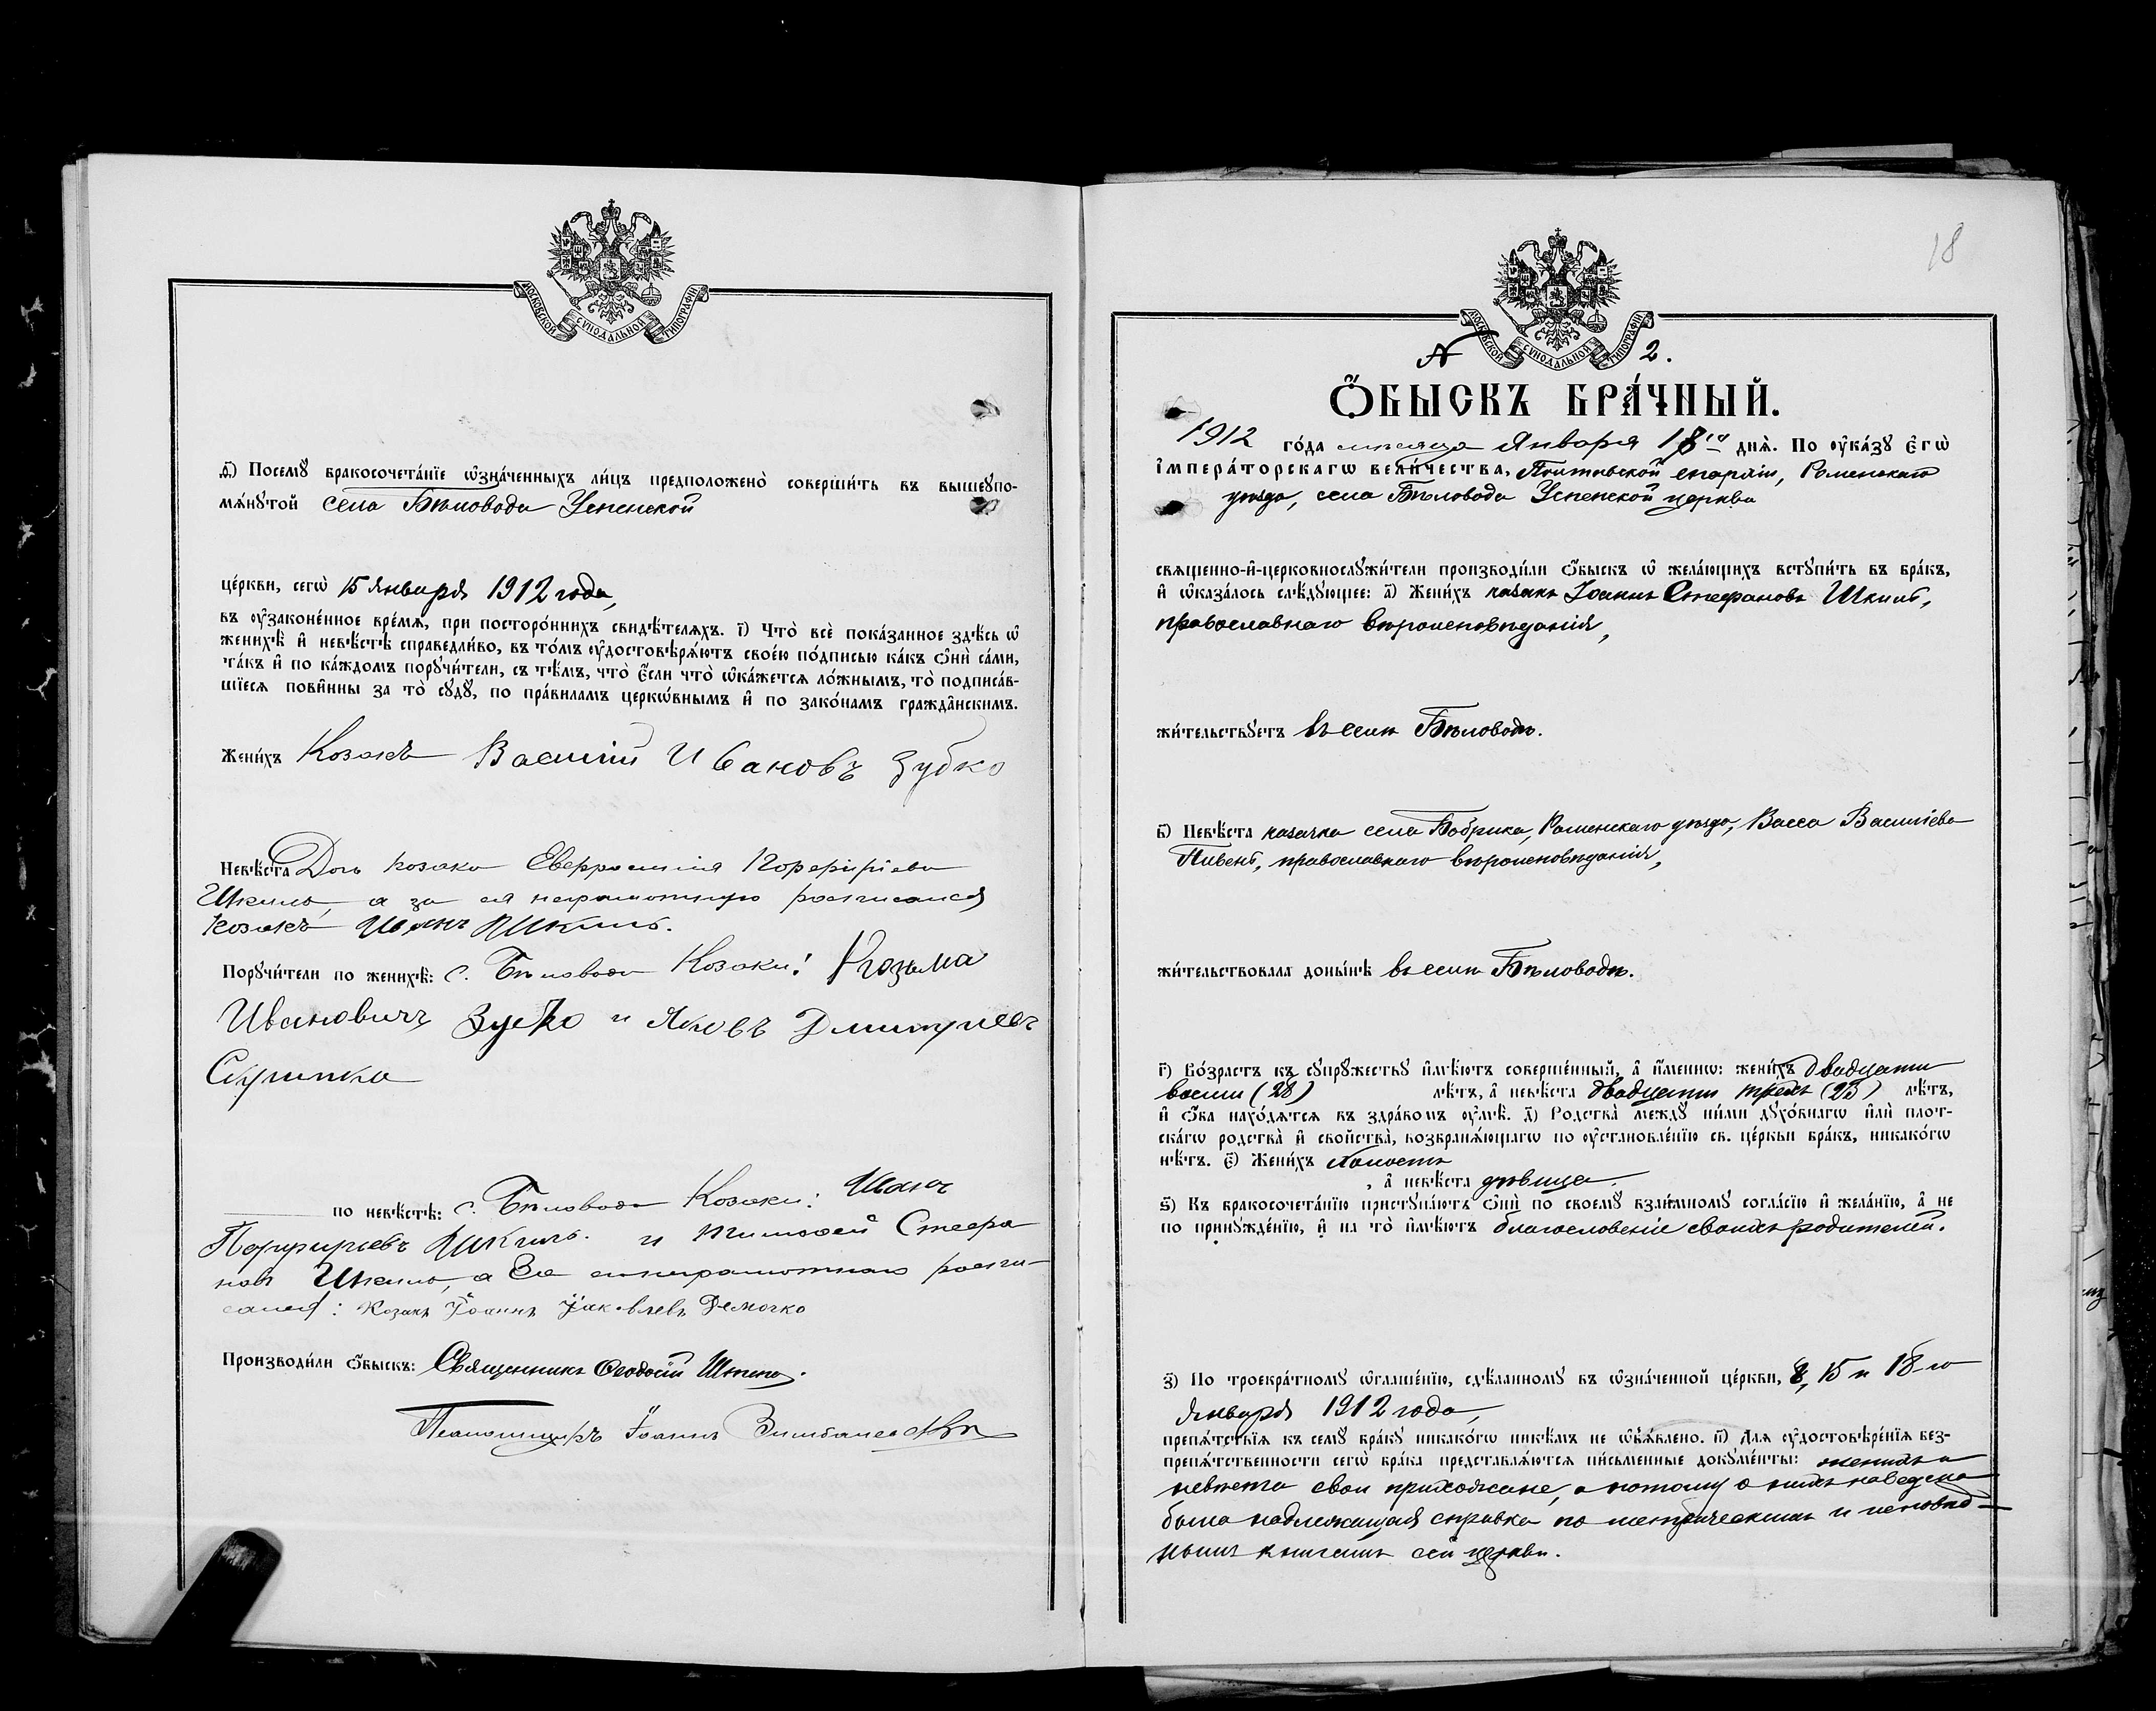 МОСКОВСКОЙ СУНОДАЛЬНОЙ ТИПОГРАФІИ
ѳ҃) Посемꙋ бракосочета́нїе ѡ҆зна́ченныхъ ли́цъ предположено̀ соверши́ть въ вышеꙋпо-
мѧ́нꙋтой села Бѣловода Успенской
це́ркви, сегѡ̀ 15 января 1912 года,
въ ᲂу҆зако́ненное вре́мѧ, при посторо́ннихъ свидѣ́телѧхъ. і҃) Что̀ всѐ пока́занное здѣ́сь ѡ҆
женихѣ̀ и҆ невѣ́стѣ справедли́во, въ то́мъ ᲂу҆достовѣрѧ́ютъ свое́ю по́дписью ка́къ ѻ҆нѝ са́ми,
та́къ и҆ по ка́ждомъ порꙋчи́тели, съ тѣ́мъ, что̀ є҆́сли что̀ ѡ҆ка́жетсѧ ло́жнымъ, то̀ подписа́в-
шїесѧ пови́нны за то̀ сꙋдꙋ̀, по пра́виламъ церкѡ́внымъ и҆ по зако́намъ гражда́нскимъ.
Жени́хъ Козакъ Василій Ивановъ Зубко
Невѣ́ста Дочь козака Евфросинія Порфиріева
Шкиль, а за ея неграмотную росписался
козакъ Иванъ Шкиль.
Порꙋчи́тели по женихѣ̀: с. Бѣловода Козаки: Козьма
Ивановичъ Зубко и Яковъ Дмитріевъ
Скрипка
по невѣ́стѣ: с. Бѣловода Козаки: Иванъ
Порфиріевъ Шкиль. и Тимофей Стефа
новъ Шкиль, а за неграмотнаго роспи-
сался: Козакъ Іоаннъ Іаковлевъ Демочко
Производи́ли ѻ҆́быскъ: Священникъ Ѳеодосій
Псаломщикъ Іоаннъ
18
МОСКОВСКОЙ СУНОДАЛЬНОЙ ТИПОГРАФІИ
№ 2.
Ѻ҆́БЫСКЪ БРА́ЧНЫЙ.
1912 го́да мѣсяца Января 18го днѧ̀. По ᲂу҆ка́зꙋ Є҆гѡ̀
І҆мпера́торскагѡ вели́чества, Полтавской епархіи, Роменскаго
уѣзда, села Бѣловода Успенской церкви
свѧщенно-и҆-церковнослꙋжи́тели производи́ли ѻ҆́быскъ ѡ҆ жела́ющихъ встꙋпи́ть въ бра́къ,
и҆ ѡ҆каза́лось слѣ́дꙋющее: а҃) Жени́хъ казакъ Іоаннъ Стефановъ Шкиль,
православнаго вѣроисповѣданія,
жи́тельствꙋетъ въ селѣ Бѣловодѣ.
в҃) Невѣ́ста казачка села Бобрика, Роменскаго уѣзда, Васса Василіева
Пивень, православнаго вѣроисповѣданія,
жи́тельствовала доны́нѣ въ селѣ Бѣловодѣ.
г҃) Во́зрастъ къ сꙋпрꙋ́жествꙋ и҆мѣ́ютъ соверше́нный, а҆ и҆́меннѡ: жени́хъ двадцати
восьми (28) лѣ́тъ, а҆ невѣ́ста двадцати трехъ (23) лѣ́тъ,
и҆ ѻ҆́ба нахо́дѧтсѧ въ здра́вомъ ᲂу҆мѣ̀. д҃) Родства̀ междꙋ̀ ни́ми дꙋхо́внагѡ и҆лѝ плот-
ска́гѡ родства̀ и҆ свойства̀, возбранѧ́ющагѡ по ᲂу҆становле́нїю св. це́ркви бра́къ, никако́гѡ
нѣ́тъ. є҃) Жени́хъ холостъ
, а҆ невѣ́ста дѣвица.
ѕ҃) Къ бракосочета́нїю пристꙋпа́ютъ ѻ҆нѝ по своемꙋ̀ взаи́мномꙋ согла́сїю и҆ жела́нїю, а҆ не
по принꙋжде́нїю, и҆ на то̀ и҆мѣ́ютъ благословеніе своихъ родителей.
з҃) По троекра́тномꙋ ѡ҆глаше́нїю, сдѣ́ланномꙋ въ ѡ҆зна́ченной це́ркви, 8, 15 и 18-го
января 1912 года,
препѧ́тствїѧ къ семꙋ̀ бра́кꙋ никако́гѡ никѣ́мъ не ѡ҆б̾ѧ́влено. и҃) Для ᲂу҆достовѣре́нїѧ без-
препѧ́тственности сегѡ̀ бра́ка представлѧ́ютсѧ пи́сьменные докꙋме́нты: женихъ и
невѣста свои прихожане, а потому о нихъ наведена
была надлежащая справка по метрическимъ и исповѣд-
нымъ книгамъ сей церкви.